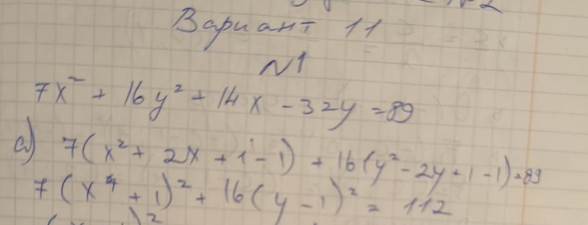 Вариант 11
№1
7x² + 16y² + 14x - 32y = 89
а) 7(x² + 2x + 1 - 1) + 16(y² - 2y + 1 - 1) = 89
7(x + 1)² + 16(y - 1)² = 112